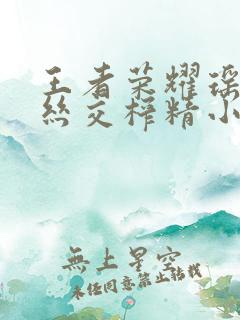 王者荣耀瑶
丝交榨精小
無上星空
未经同意禁止转载